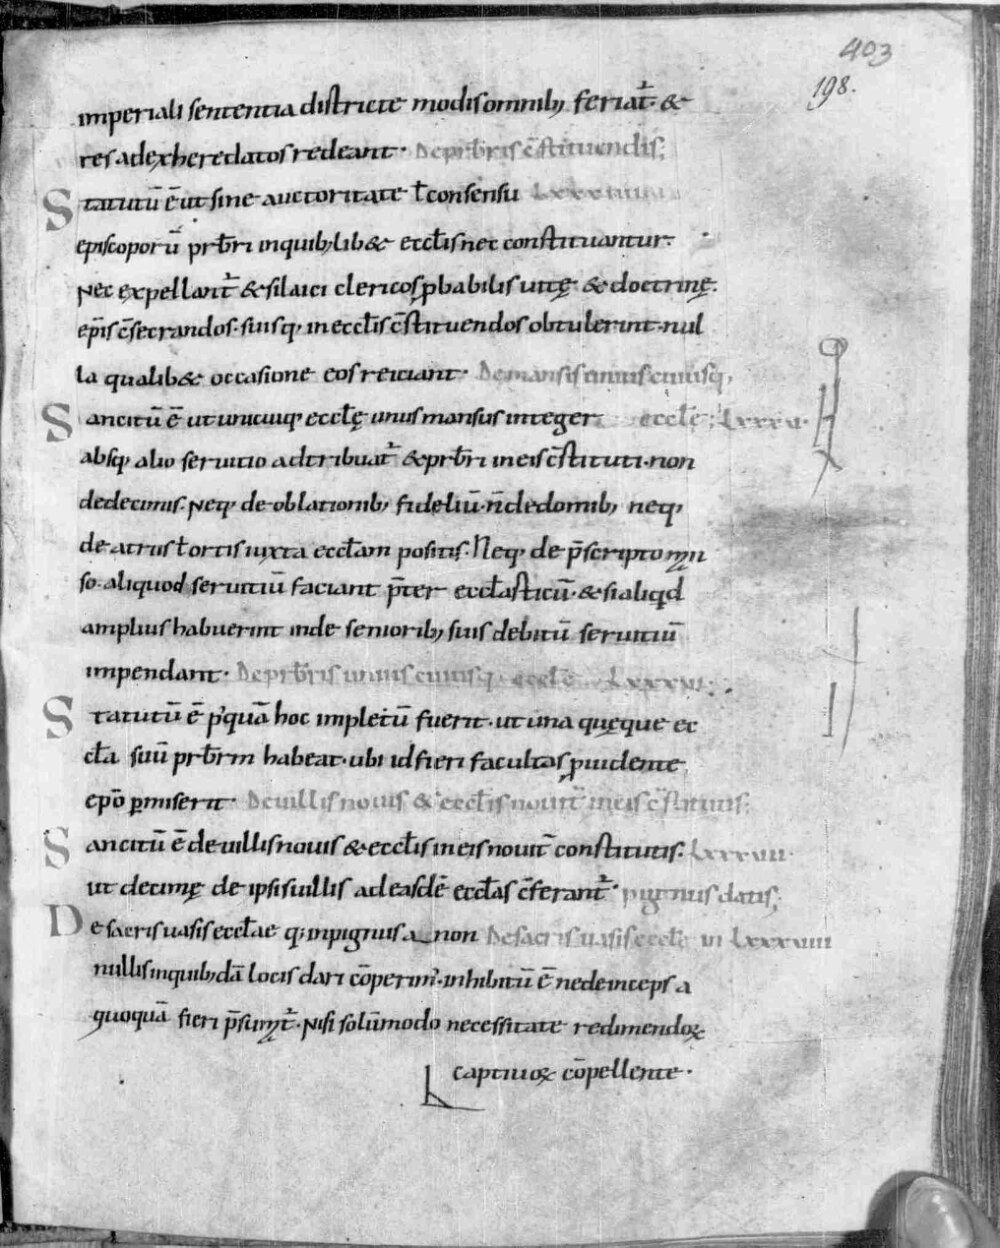 403
198.
imperiali sententia districte modisomnib; feriat̄. &
res adexheredatos redeant. De prb̄ris c̄stituendis;
Statutū ē ut sine auctoritate ł consensu LXXXIIII
episcoporū prb̄ri inquib;lib& eccl̄is nec constituantur.
Nec expellant̄ & si laici clericos ꝓbabilis uitę & doctrinę.
ep̄is c̄secrandos. suisq; in eccl̄is c̄stituendos obtulerint. nul
la qualib& occasione eos reiciant. De mansis unius cuiusq;
Sancitū ē ut unicuiq; eccl̄ę unus mansus integer eccl̄ę; LXXXV.
absq; alio seruitio adtribuat̄ & prb̄ri in eis c̄stituti. non
de decimis. Neq; de oblationib; fideliū. n̄ de domib; neq;
de atriis ł ortis iuxta eccl̄am positis. Neq; de p̄scripto man
so. aliquod seruitiū faciant p̄ter eccl̄asticū. & si aliqd
amplius habuerint inde seniorib; suis debitū seruitiū
impendant. De prb̄ris unius cuiusq; eccl̄ę LXXXVI;
Statutū ē p'quā hoc impletū fuerit. ut una quęque ec
cl̄a suū prb̄rm habeat. ubi id fieri facultas ꝓuidente
ep̄o ꝑmiserit. De uillis nouis & eccl̄is nouit̄ in eis c̄stitutis;
Sancitū ē de uillis nouis & eccl̄is in eis nouit̄ constitutis. LXXXVII.
ut decimę de ipsis uillis ad easdē eccl̄as c̄ferant̄. pignus datis;
De sacris uasis eccl̄ae q; in pignus a non De sacris uasis eccl̄ę in LXXXVIII
nullis inquib;dā locis dari cōperim'. inhibitū ē ne deinceps a
quoquā fieri p̄sumat̄. Nisi solūmodo necessitate redimendoꝝ
captiuoꝝ cōpellente.